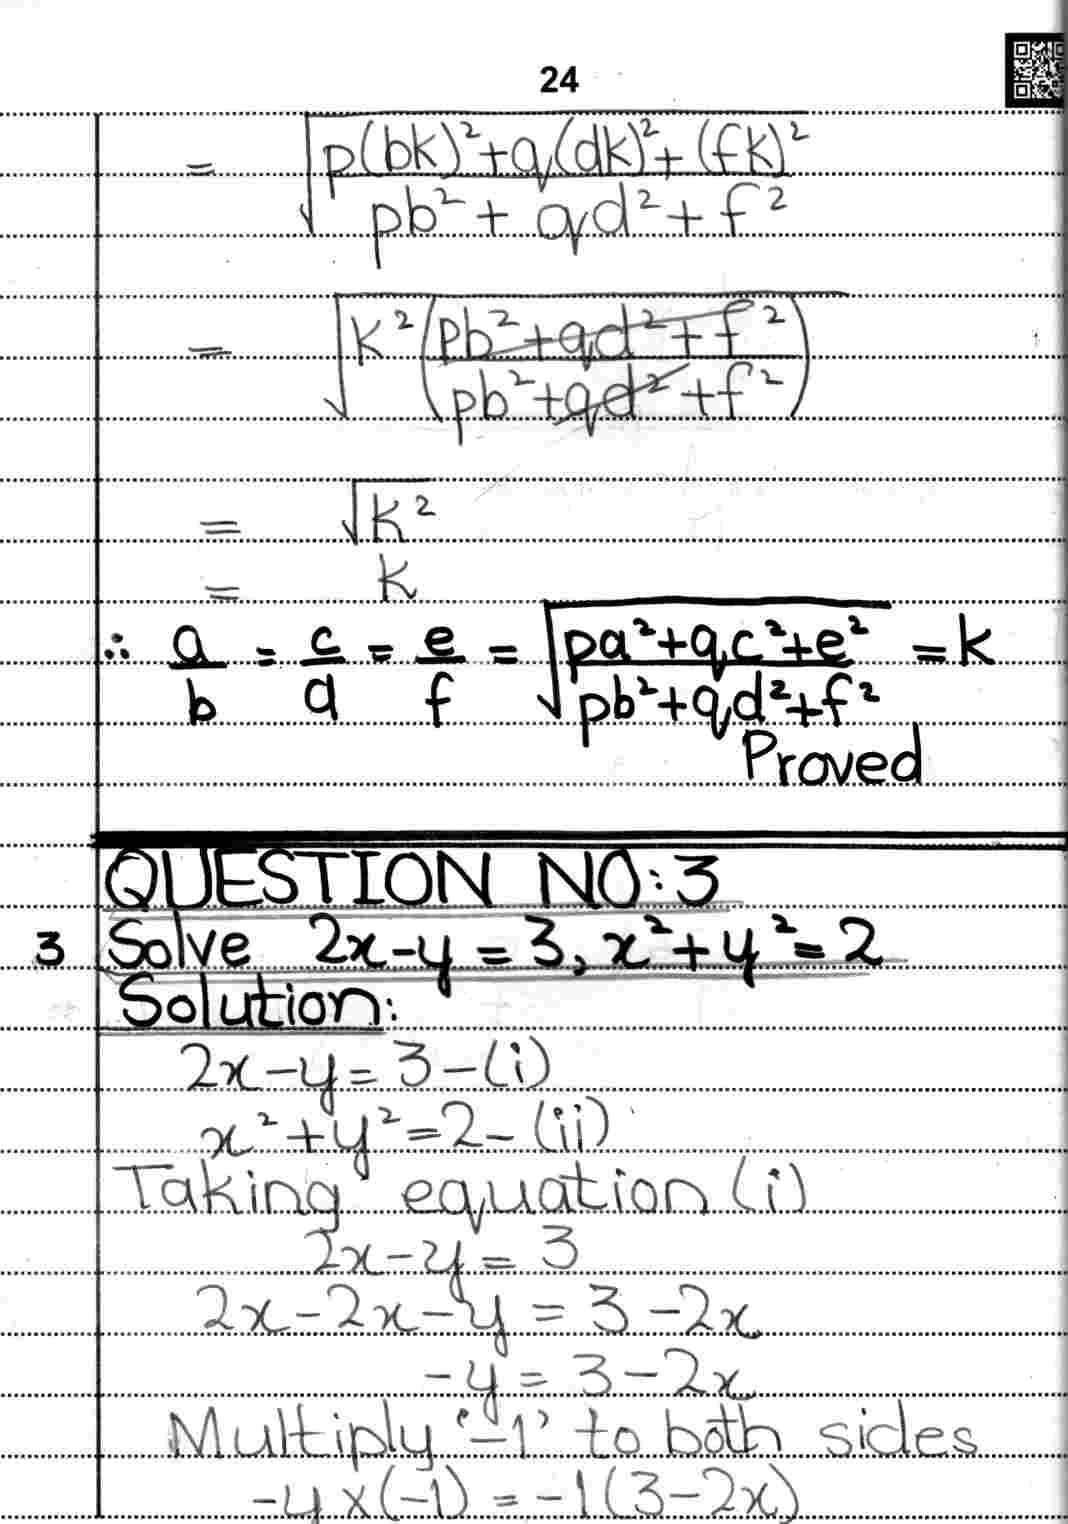 24
= √(p(bk)²+q(dk)²+(fk)² / pb²+qd²+f²)
= √(k²(pb²+qd²+f² / pb²+qd²+f²))
= √k²
= k
∴ a/b = c/d = e/f = √(pa²+qc²+e² / pb²+qd²+f²) = k
Proved
QUESTION NO:3
3 Solve 2x-y=3, x²+y²=2
Solution:
2x-y=3-(i)
x²+y²=2-(ii)
Taking equation (i)
2x-y=3
2x-2x-y=3-2x
-y=3-2x
Multiply '-1' to both sides
-y×(-1)=-1(3-2x)